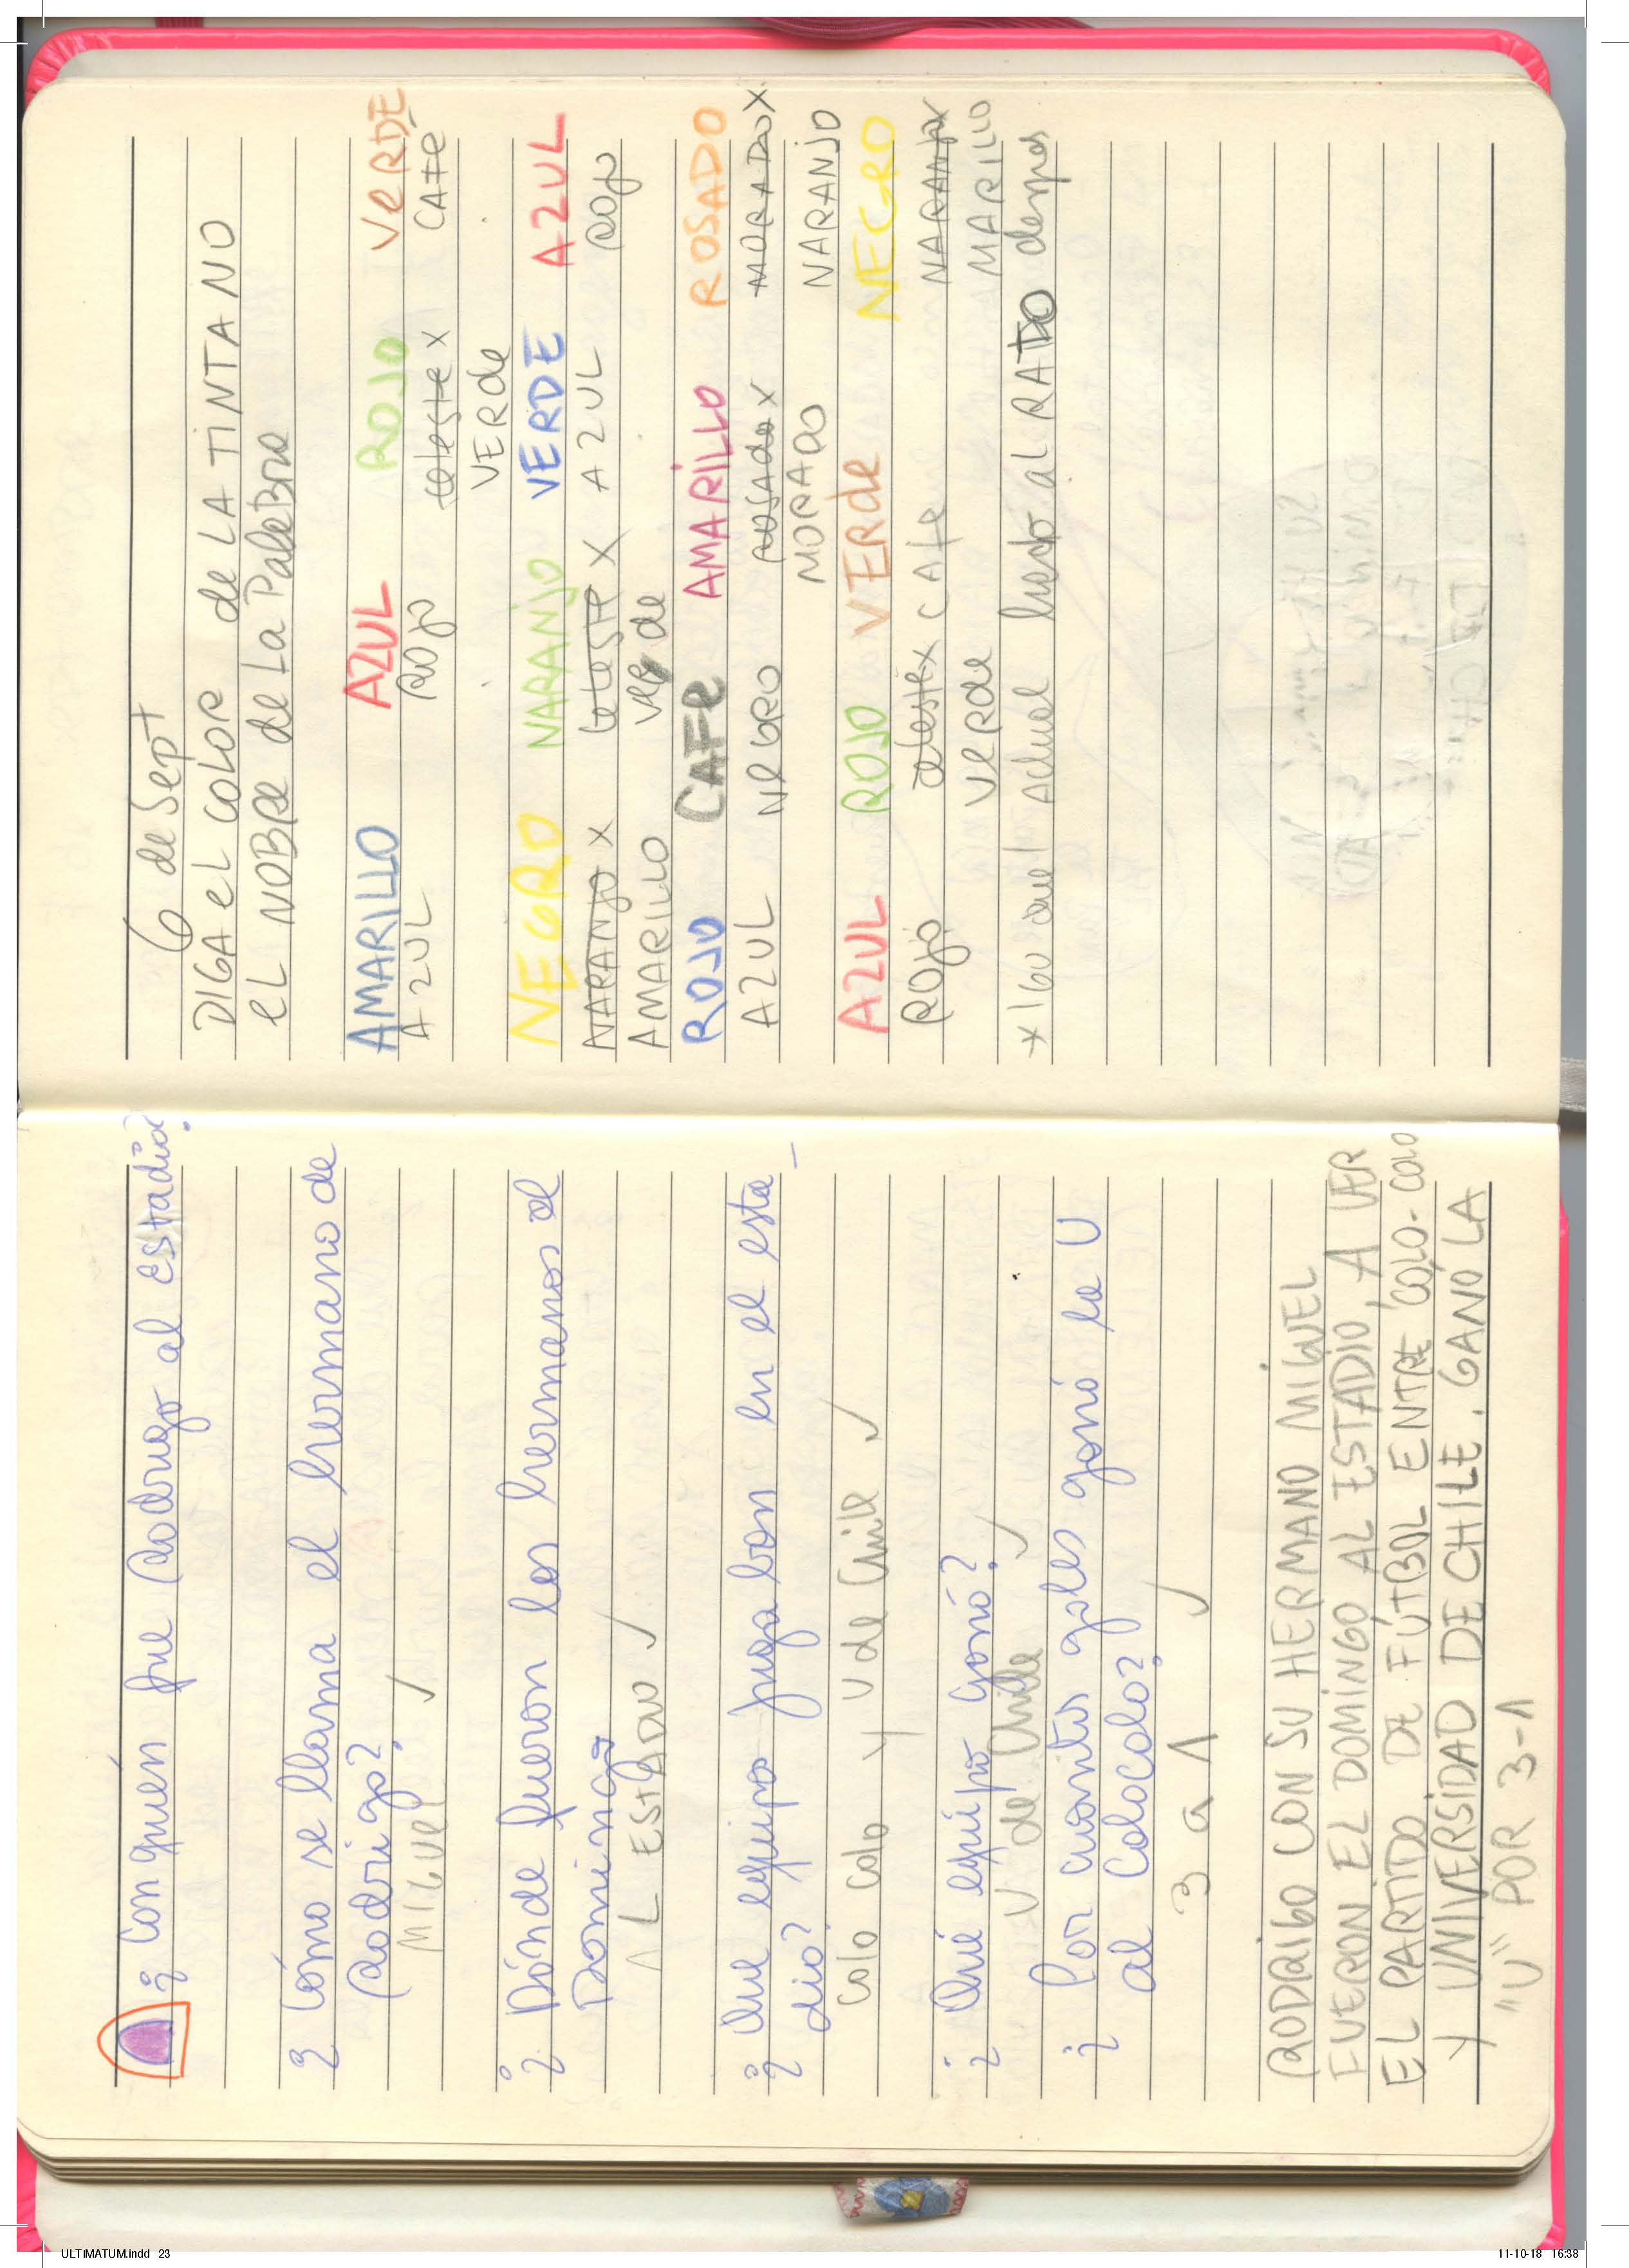 ¿Con quién fue Rodrigo al estadio?
¿ Cómo se llama el hermano de
Rodrigo?
MIGUEL ✓
¿ Dónde fueron los hermanos el
Domingo
AL ESTADIO ✓
¿ Que equipos jugaban en el esta-
dio?
Colo colo y U de Chile ✓
¿ Qué equipo ganó?
U de Chile ✓
¿ Por cuantos goles ganó la U
al Colocolo?
3 a 1 ✓
RODRIGO CON SU HERMANO MIGUEL
FUERON EL DOMINGO AL ESTADIO, A VER
EL PARTIDO DE FÚTBOL ENTRE COLO-COLO
Y UNIVERSIDAD DE CHILE. GANÓ LA
"U" POR 3-1
6 de Sept
DIGA el COLOR de LA TINTA NO
eL NOBRE de La PalaBra
AMARILLO AZUL ROJO VeRDE
AZUL ROJO celeste x CAFE
VERde
NEGRO NARANJO VERDE AZUL
NARANJO x celeste x AZUL ROJO
AMARILLO verde
ROJO CAFe AMARILLO ROSADO
AZUL NeGRO ROSAdo x MORADO x
MORADO NARANJO
AZUL ROJO VERde NEGRO
ROJO celeste x CAfe NARANJO x
VeRde AMARILLO
al RATO despues
ULTIMATUM.indd 23
11-10-18 16:38